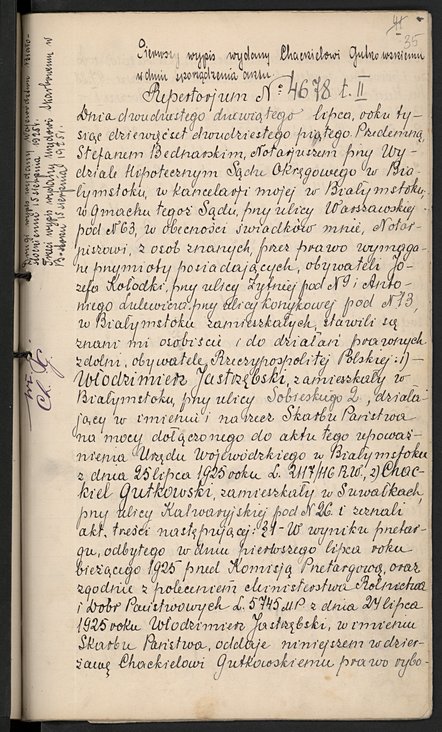 35
Pierwszy wypis wydany Chackielowi Gutkowskiemu
w dniu sporządzenia aktu.
Repertorjum Nº 4678 t. II
Dnia dwudziestego dziewiątego lipca, roku ty-
siąc dziewięćset dwudziestego piątego. Przedemną
Stefanem Bednarskim, Notarjuszem przy Wy-
dziale Hipotecznym Sądu Okręgowego w Bia-
łymstoku, w kancelarji mojej w Białymstoku,
w gmachu tegoż Sądu, przy ulicy Warszawskiej
pod Nº 63, w obecności świadków mnie, Notar-
juszowi, z osób znanych, przez prawo wymaga-
ne przymioty posiadających, obywateli Jó-
zefa Kołodki, przy ulicy Żytniej pod Nº 1 i Anto-
niego Lulewicza przy ulicy Konykowej pod Nº 13,
w Białymstoku zamieszkałych, stawili się
znani mi osobiście i do działań prawnych
zdolni, obywatele Rzeczypospolitej Polskiej: 1) —
Włodzimierz Jastrzębski, zamieszkały w
Białymstoku, przy ulicy Sobieskiego 2, działa-
jący w imieniu i na rzecz Skarbu Państwa
na mocy dołączonego do aktu tego upoważ-
nienia Urzędu Wojewódzkiego w Białymstoku
z dnia 25 lipca 1925 roku L. 2117/116 R.W., 2) Chac-
kiel Gutkowski, zamieszkały w Suwałkach,
przy ulicy Kalwaryjskiej pod Nº 26 i zeznali
akt, treści następującej: § 1 - W wyniku przetar-
gu, odbytego w dniu pierwszego lipca roku
bieżącego 1925 przed Komisją Przetargową, oraz
zgodnie z poleceniem Ministerstwa Rolnictwa
i Dóbr Państwowych L. 5745 z dnia 24 lipca
1925 roku Włodzimierz Jastrzębski, w imieniu
Skarbu Państwa, oddaje niniejszem w dzier-
żawę Chackielowi Gutkowskiemu prawo rybo-
Drugi wypis wydany
15 sierpnia 1925 r.
Trzeci wypis wydany Skarbowemu w
15 sierpnia 1925 r.